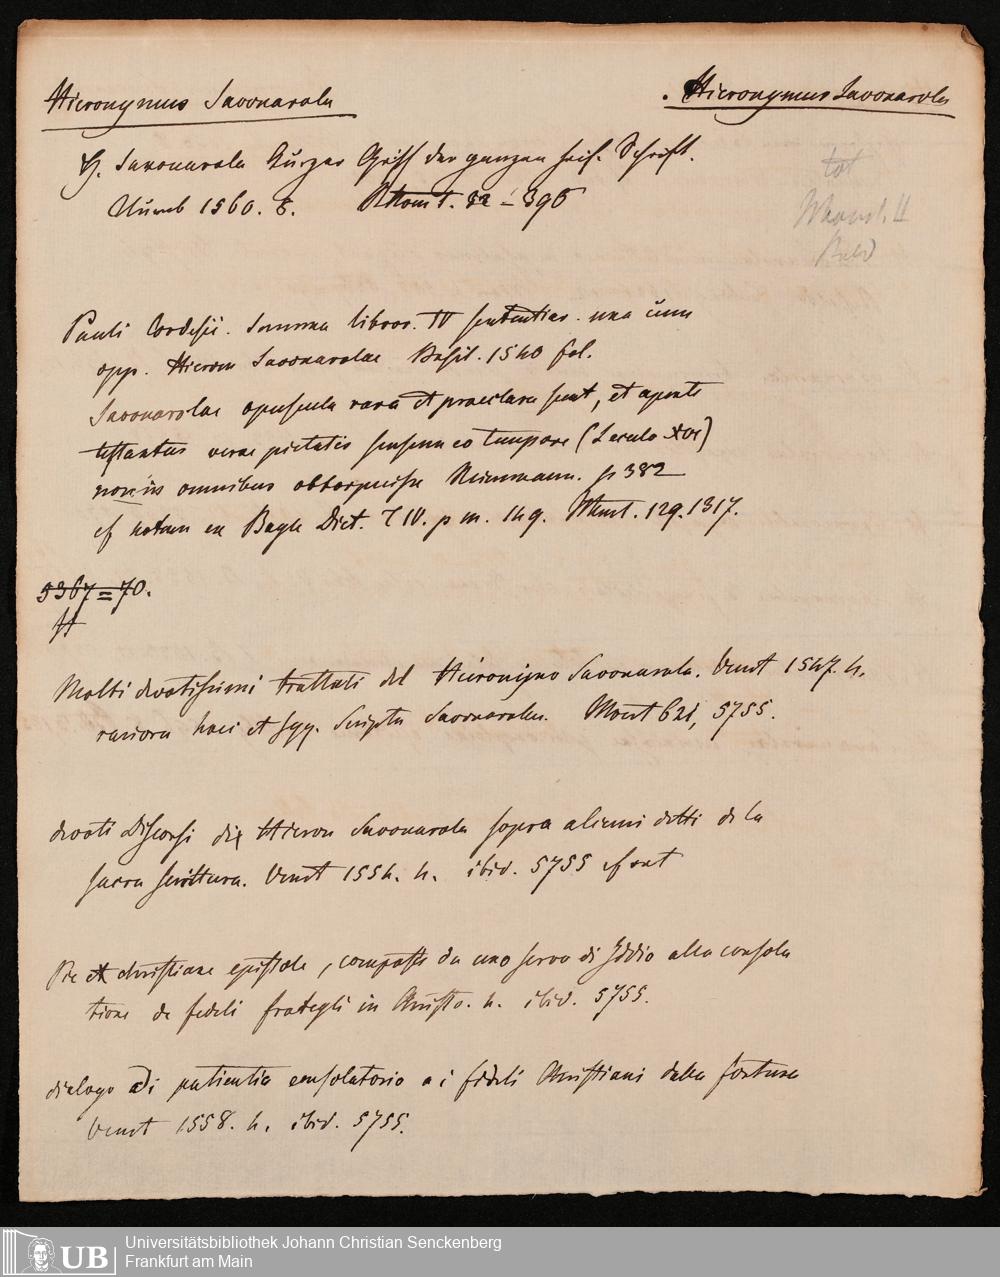 Hieronymus Savonarola
. Hieronymus Savonarola
H. Savonarola Kurzer Griff der ganzen heil. Schrift.
Nürnb 1560. 8. 32 – 396
tot
II
Pauli Cordesii. Summa libror. IV sententiar. una cum
opp. Hieron Savonarolae Basil. 1540 fol.
Savonarolae opuscula rara et praeclara sunt, et aperte
testantur verae pietatis sensum eo tempore (Seculo XVI)
non in omnibus obtorpuisse Reimmann. p 382
cf notam ex Bayle Dict. T IV. p m. 149. 129. 1317.
5367 = 70.
ff
Molti devotissimi trattati del Hieronijmo Savonarola. Venet 1547. 4.
rariora haec et sqq. Scripta Savonarolae. 621, 5755.
devoti Discorsi di Hieron Savonarola sopra alcuni detti de la
sacra scrittura. Venet 1554. 4. ibid. 5755
Pie et christiane epistole, composte da uno servo di Iddio alla consola
tione de fedeli frategli in Christo. 4. ibid. 5755.
dialogo di patientia consolatorio a i fideli Christiani della fortuna
Venet 1558. 4. ibid. 5755.
UB
Universitätsbibliothek Johann Christian Senckenberg
Frankfurt am Main